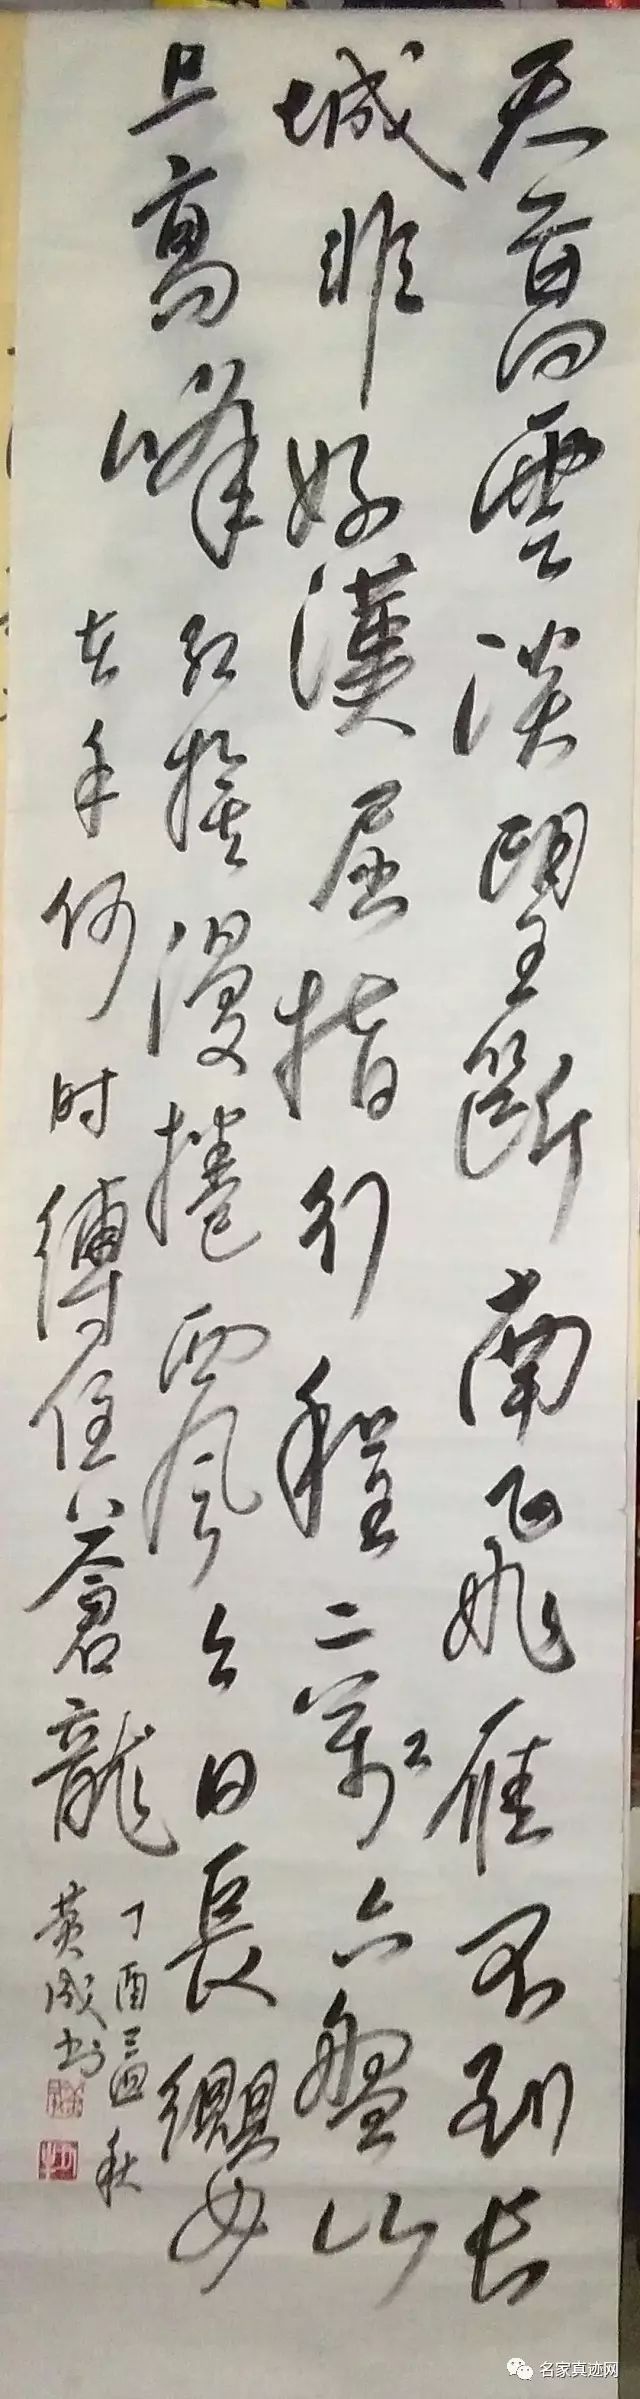 天高雲淡望斷南飛雁不到长
城非好漢屈指行程二萬六盤山
上高峰红旗漫捲西风今日長纓
在手何时縛住蒼龍
丁酉孟秋
黄成书
名家真迹网